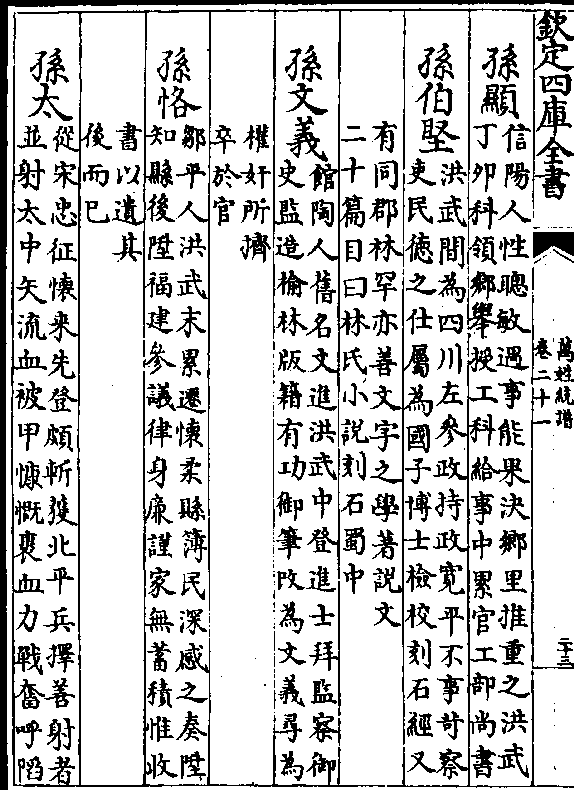 欽定四庫全書
萬姓統譜
卷二十一
二十三
孫顯
信陽人性聰敏遇事能果決鄉里推重之洪武
丁卯科領鄉舉授工科給事中累官工部尚書
孫伯堅
洪武間為四川左參政持政寬平不事苛察
吏民德之仕屬為國子博士檢校刻石經又
有同郡林罕亦善文字之學著說文
二十篇目曰林氏小說刻石蜀中
孫文義
館陶人舊名文進洪武中登進士拜監察御
史監造榆林版籍有功御筆改為文義尋為
權奸所擠
卒於官
孫恪
鄒平人洪武末累遷懷柔縣簿民深感之奏陞
知縣後陞福建參議律身廉謹家無蓄積惟收
書以遺其
後而已
孫太
從宋忠征懷来先登頗斬獲北平兵擇善射者
並射太中矢流血被甲慷慨裹血力戰奮呼蹈